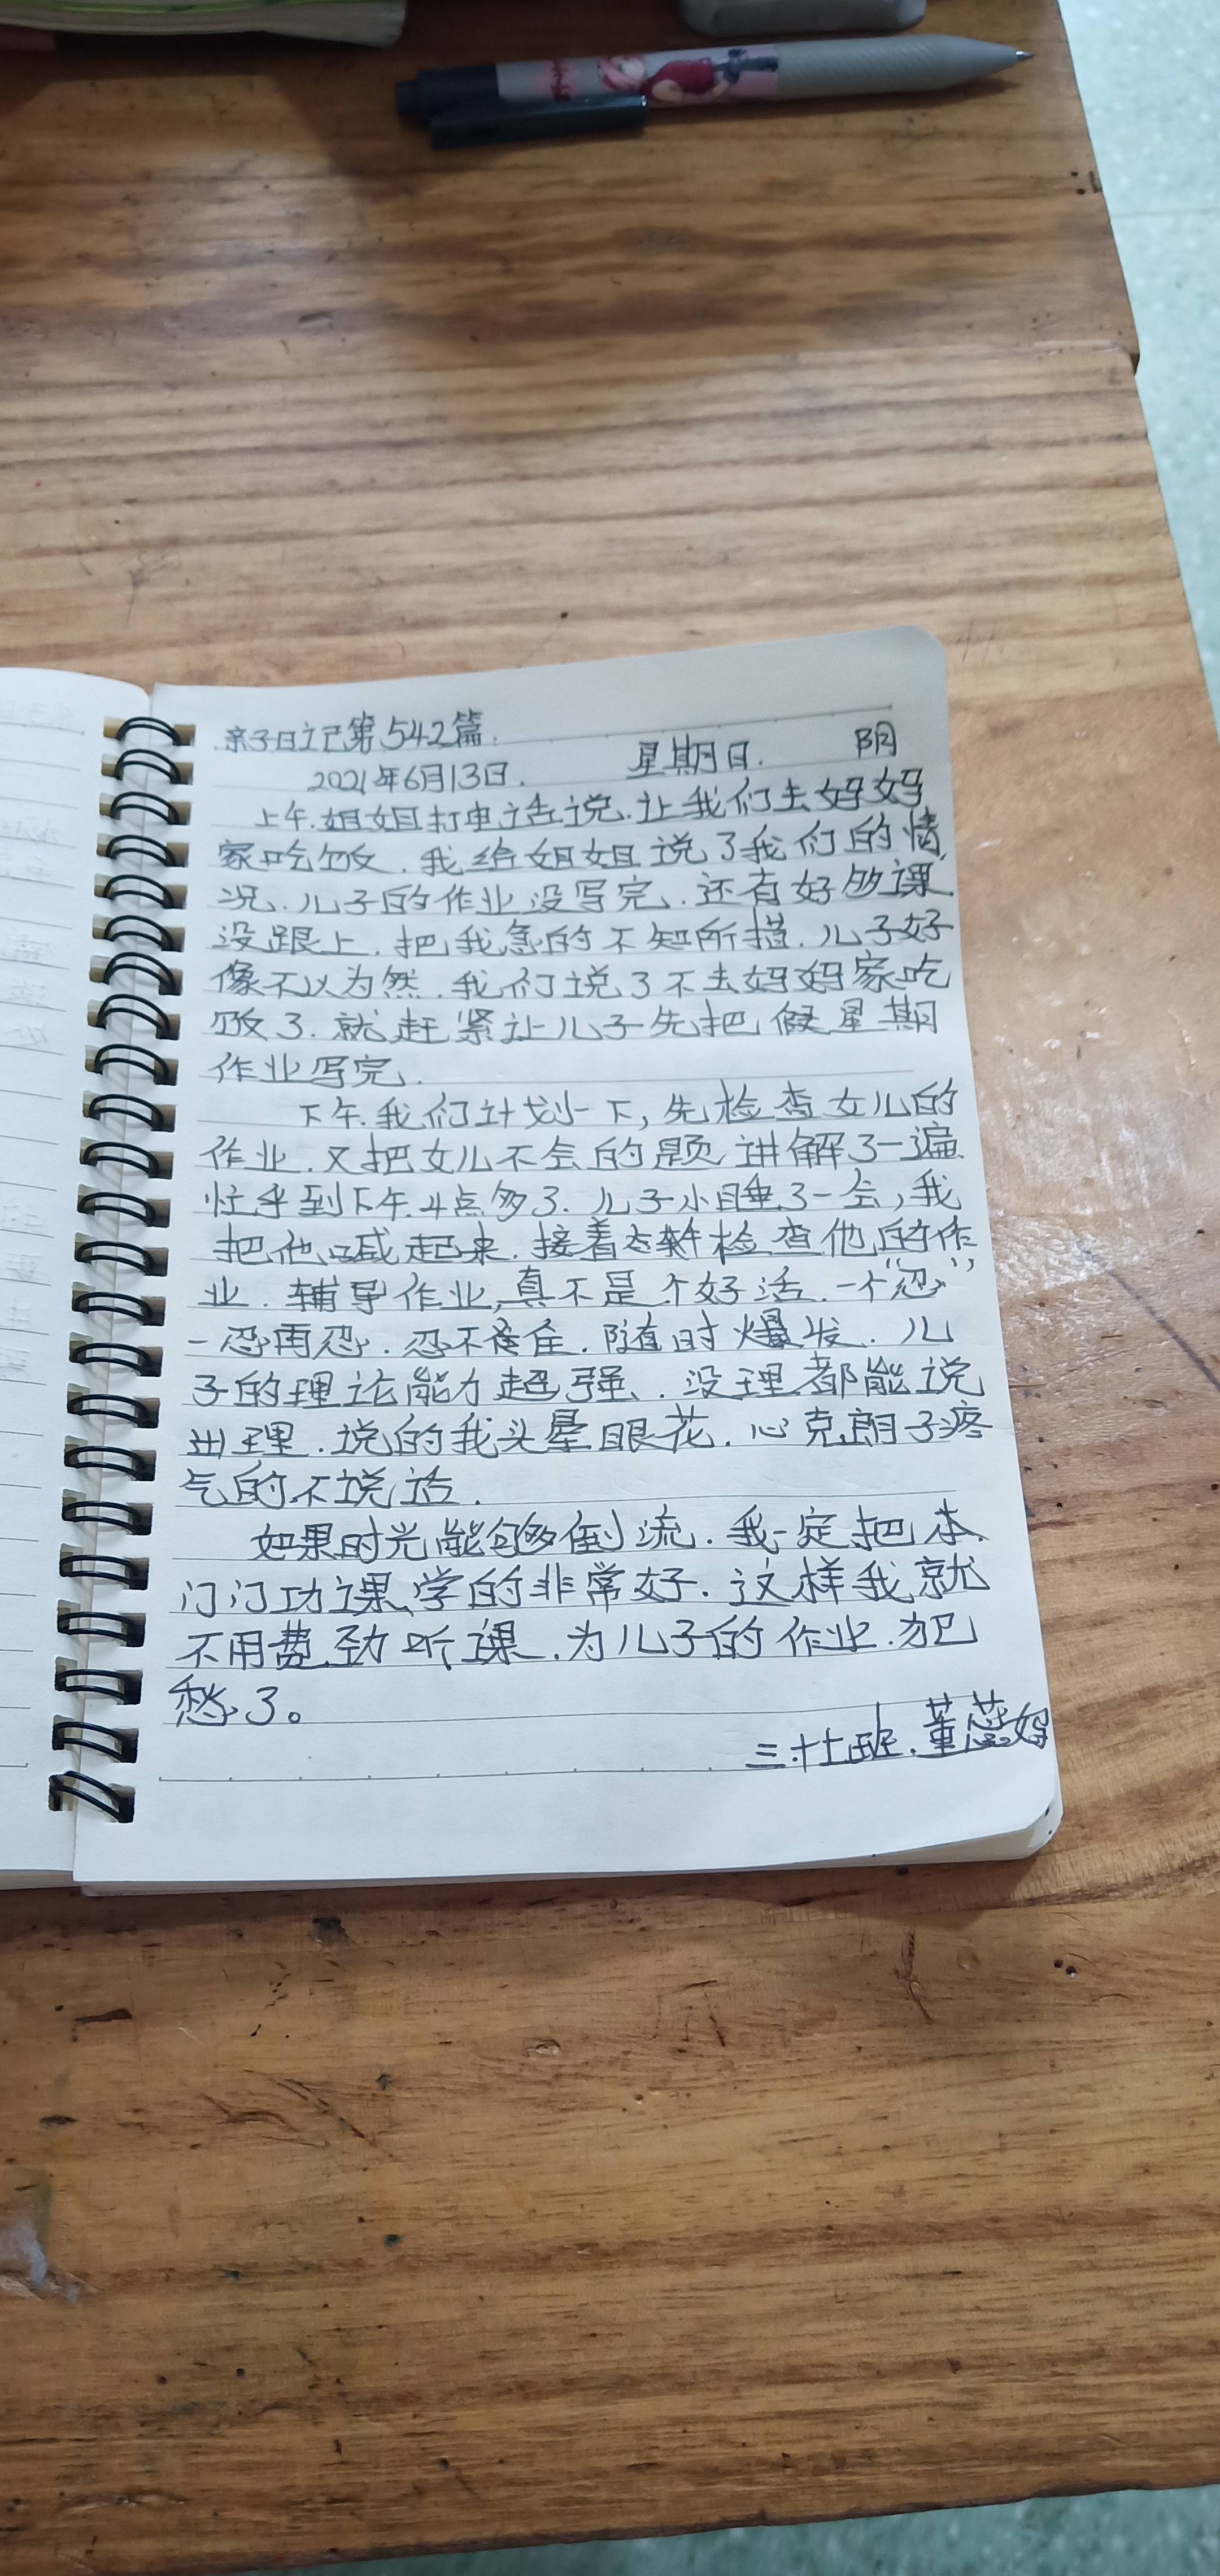 亲子日记第542篇.
2021年6月13日. 星期日. 阴
上午.姐姐打电话说.让我们去妈妈
家吃饭.我给姐姐说了我们的情
况.儿子的作业没写完.还有好多课
没跟上.把我急的不知所措.儿子好
像不以为然.我们说了不去妈妈家吃
饭了.就赶紧让儿子先把假星期
作业写完.
下午.我们计划一下,先检查女儿的
作业.又把女儿不会的题讲解了一遍
忙乎到下午.4点多了.儿子小睡了一会,我
把他喊起来.接着检查他的作
业.辅导作业,真不是个好活.一个“忍”
一忍再忍.忍不住.随时爆发.儿
子的理论能力超强.没理都能说
出理.说的我头晕眼花.心克郎子疼
气的.不说话.
如果时光能够倒流.我一定把
门门功课学的非常好.这样我就
不用费劲听课.为儿子的作业.
愁了。
三.十七班.董蕊妈